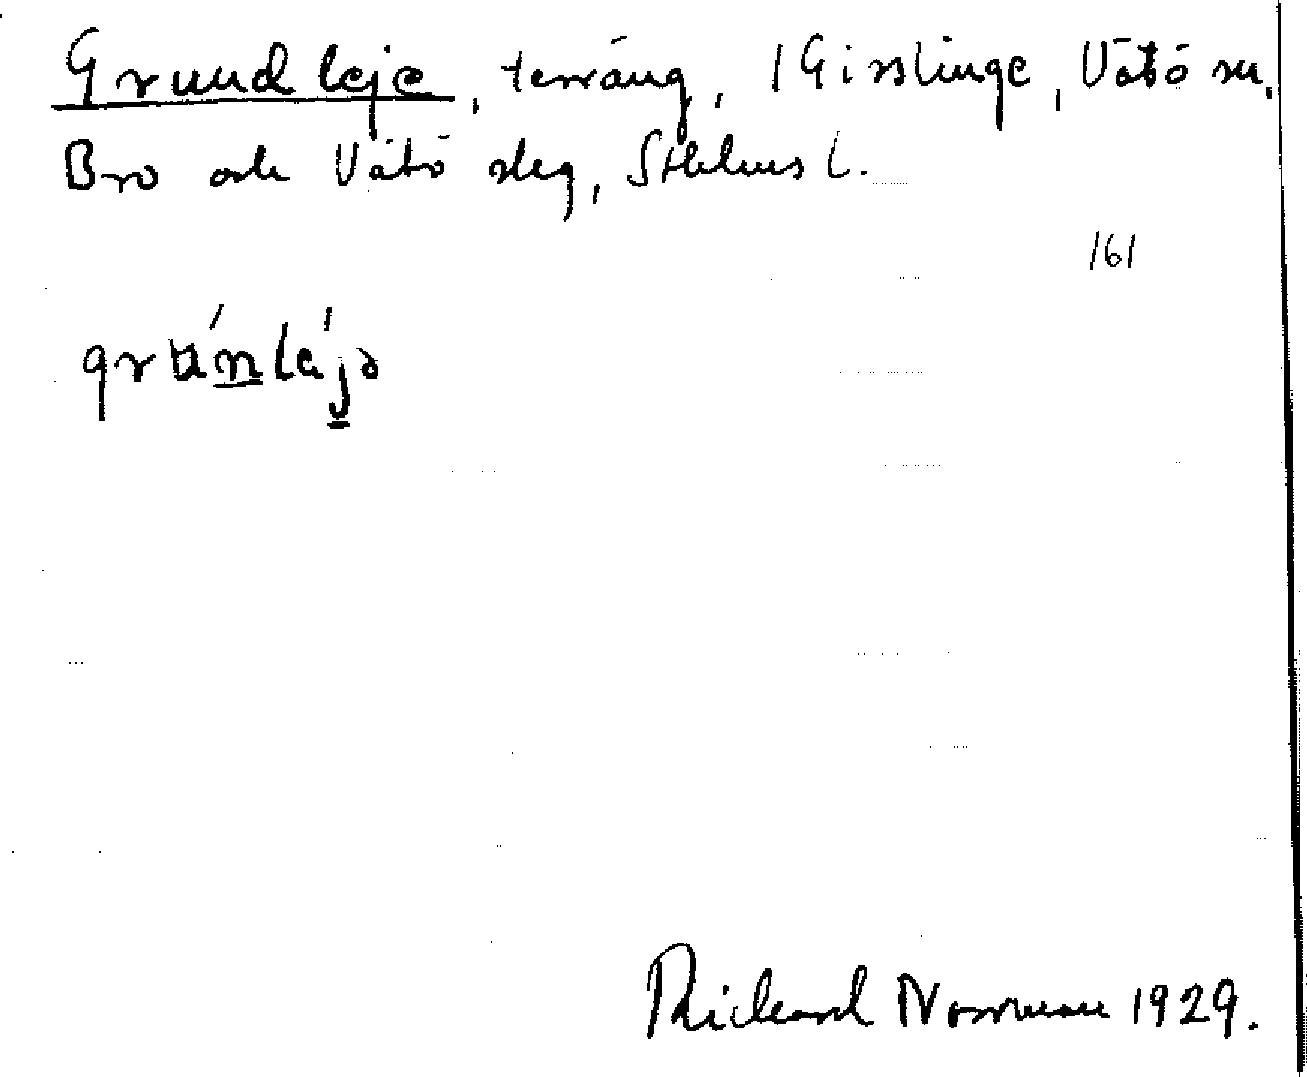 Grundleje, terräng, i Gisslinge, Vätö sn.
Bro och Vätö slg, Sthlms l.
161
Rickard Norrman 1929.